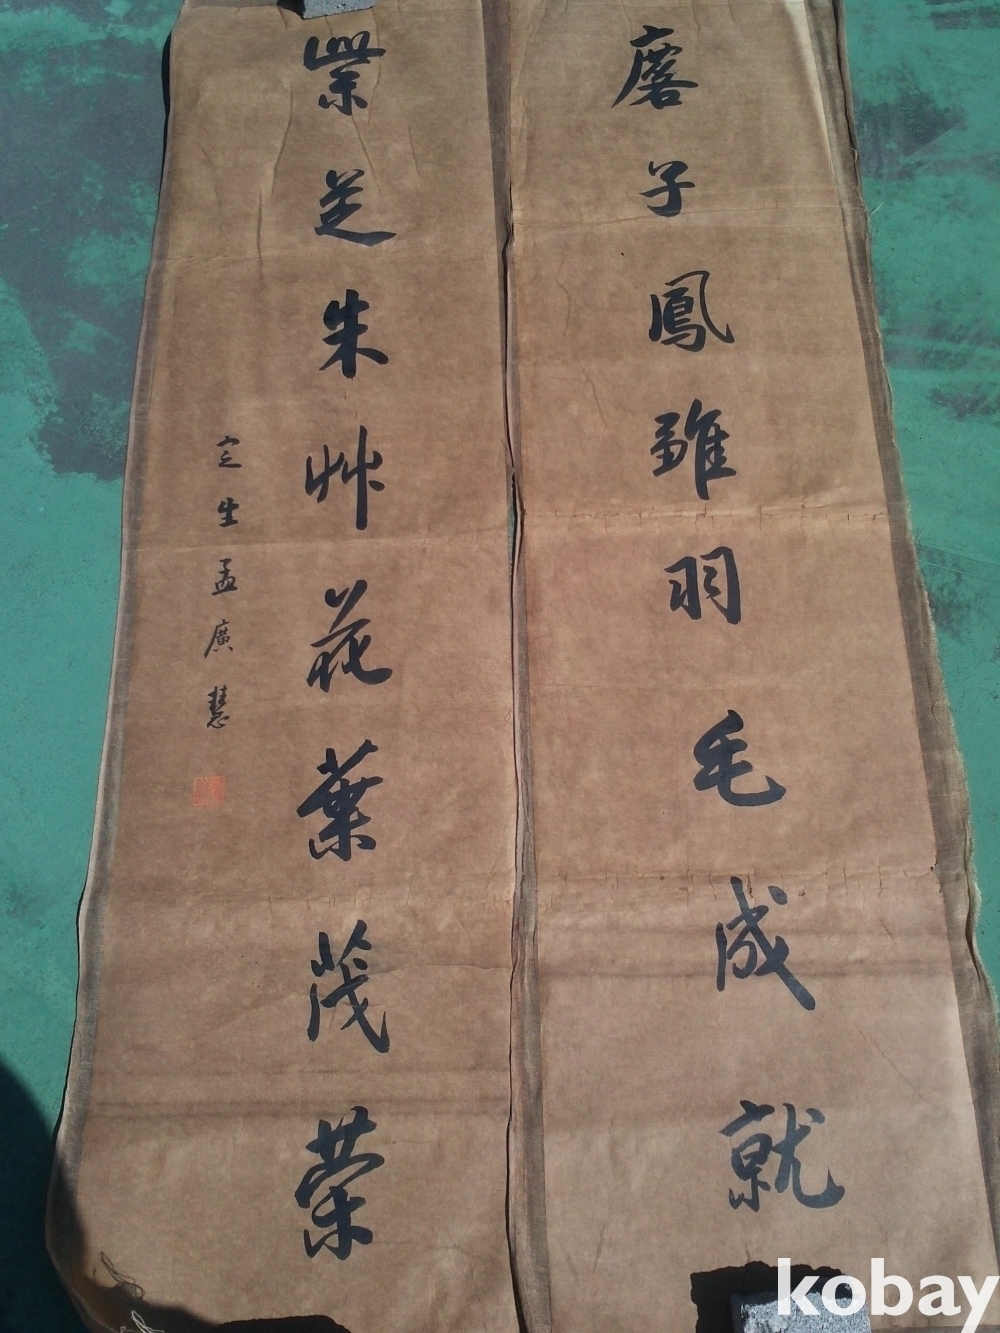 麐子鳳雛羽毛成就
紫芝朱艸花葉茂榮
定生孟廣慧
kobay